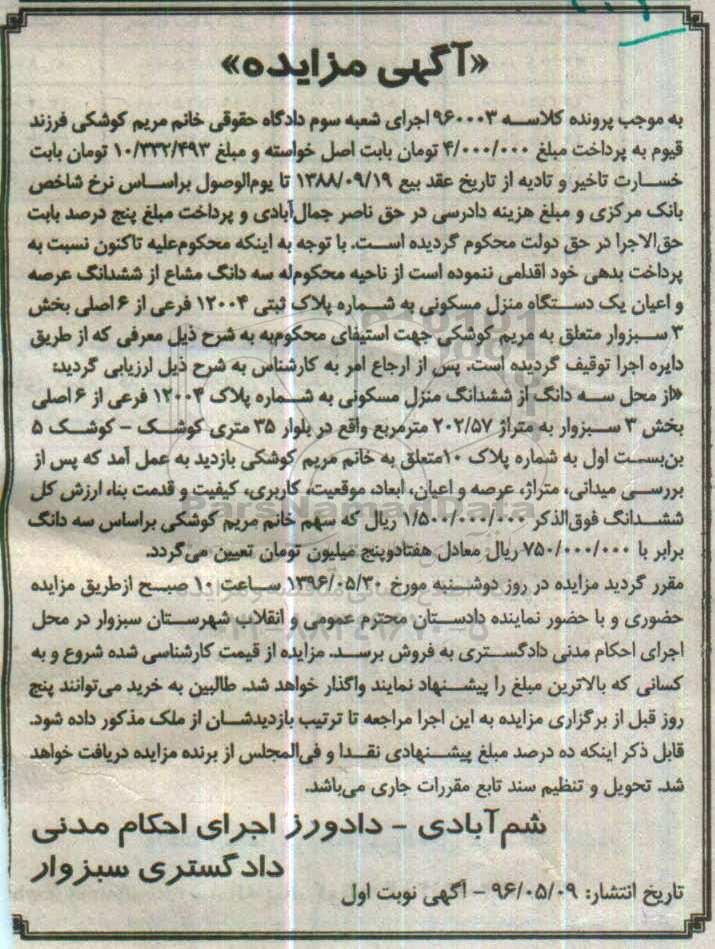 «آگهی مزایده»
به موجب پرونده کلاسه ۹۶۰۰۰۳ اجرای شعبه سوم دادگاه حقوقی خانم مریم کوشکی فرزند
قیوم به پرداخت مبلغ ۴/۰۰۰/۰۰۰ تومان بابت اصل خواسته و مبلغ ۱۰/۳۳۲/۴۹۳ تومان بابت
خسارت تاخیر و تادیه از تاریخ عقد بیع ۱۳۸۸/۰۹/۱۹ تا یوم‌الوصول براساس نرخ شاخص
بانک مرکزی و مبلغ هزینه دادرسی در حق ناصر جمال‌آبادی و پرداخت مبلغ پنج درصد بابت
حق‌الاجرا در حق دولت محکوم گردیده است. با توجه به اینکه محکوم‌علیه تاکنون نسبت به
پرداخت بدهی خود اقدامی ننموده است از ناحیه محکوم‌له سه دانگ مشاع از ششدانگ عرصه
و اعیان یک دستگاه منزل مسکونی به شماره پلاک ثبتی ۱۲۰۰۴ فرعی از ۶ اصلی بخش
۳ سبزوار متعلق به مریم کوشکی جهت استیفای محکوم‌به به شرح ذیل معرفی که از طریق
دایره اجرا توقیف گردیده است. پس از ارجاع امر به کارشناس به شرح ذیل ارزیابی گردید:
«از محل سه دانگ از ششدانگ منزل مسکونی به شماره پلاک ۱۲۰۰۴ فرعی از ۶ اصلی
بخش ۳ سبزوار به متراژ ۲۰۲/۵۷ مترمربع واقع در بلوار ۳۵ متری کوشک - کوشک ۵
بن‌بست اول به شماره پلاک ۱۰متعلق به خانم مریم کوشکی بازدید به عمل آمد که پس از
بررسی میدانی، متراژ، عرصه و اعیان، ابعاد، موقعیت، کاربری، کیفیت و قدمت بنا، ارزش کل
ششدانگ فوق‌الذکر ۱/۵۰۰/۰۰۰/۰۰۰ ریال که سهم خانم مریم کوشکی براساس سه دانگ
برابر با ۷۵۰/۰۰۰/۰۰۰ ریال معادل هفتادوپنج میلیون تومان تعیین می‌گردد.
مقرر گردید مزایده در روز دوشنبه مورخ ۱۳۹۶/۰۵/۳۰ ساعت ۱۰ صبح ازطریق مزایده
حضوری و با حضور نماینده دادستان محترم عمومی و انقلاب شهرستان سبزوار در محل
اجرای احکام مدنی دادگستری به فروش برسد. مزایده از قیمت کارشناسی شده شروع و به
کسانی که بالاترین مبلغ را پیشنهاد نمایند واگذار خواهد شد. طالبین به خرید می‌توانند پنج
روز قبل از برگزاری مزایده به این اجرا مراجعه تا ترتیب بازدیدشان از ملک مذکور داده شود.
قابل ذکر اینکه ده درصد مبلغ پیشنهادی نقدا و فی‌المجلس از برنده مزایده دریافت خواهد
شد. تحویل و تنظیم سند تابع مقررات جاری می‌باشد.
شم‌آبادی - دادورز اجرای احکام مدنی
دادگستری سبزوار
تاریخ انتشار: ۹۶/۰۵/۰۹ - آگهی نوبت اول
ParsNamadData